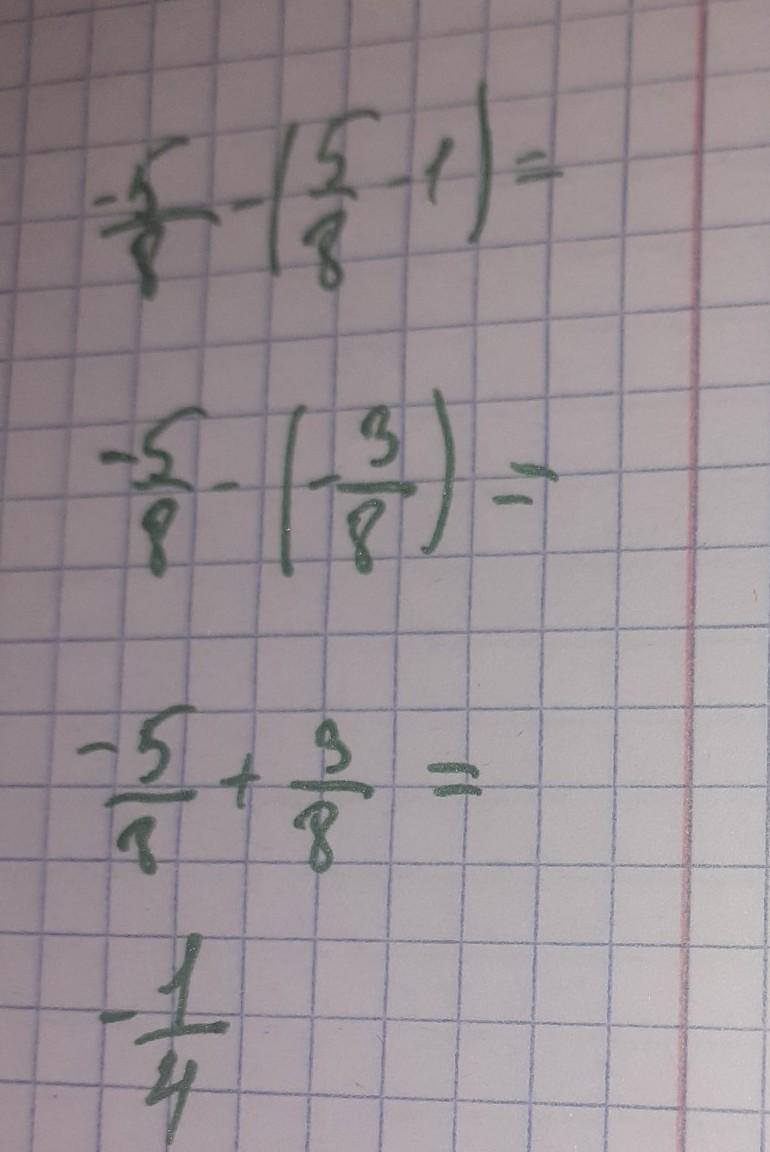 -5/8 - (5/8 - 1) =
-5/8 - (-3/8) =
-5/8 + 3/8 =
-1/4